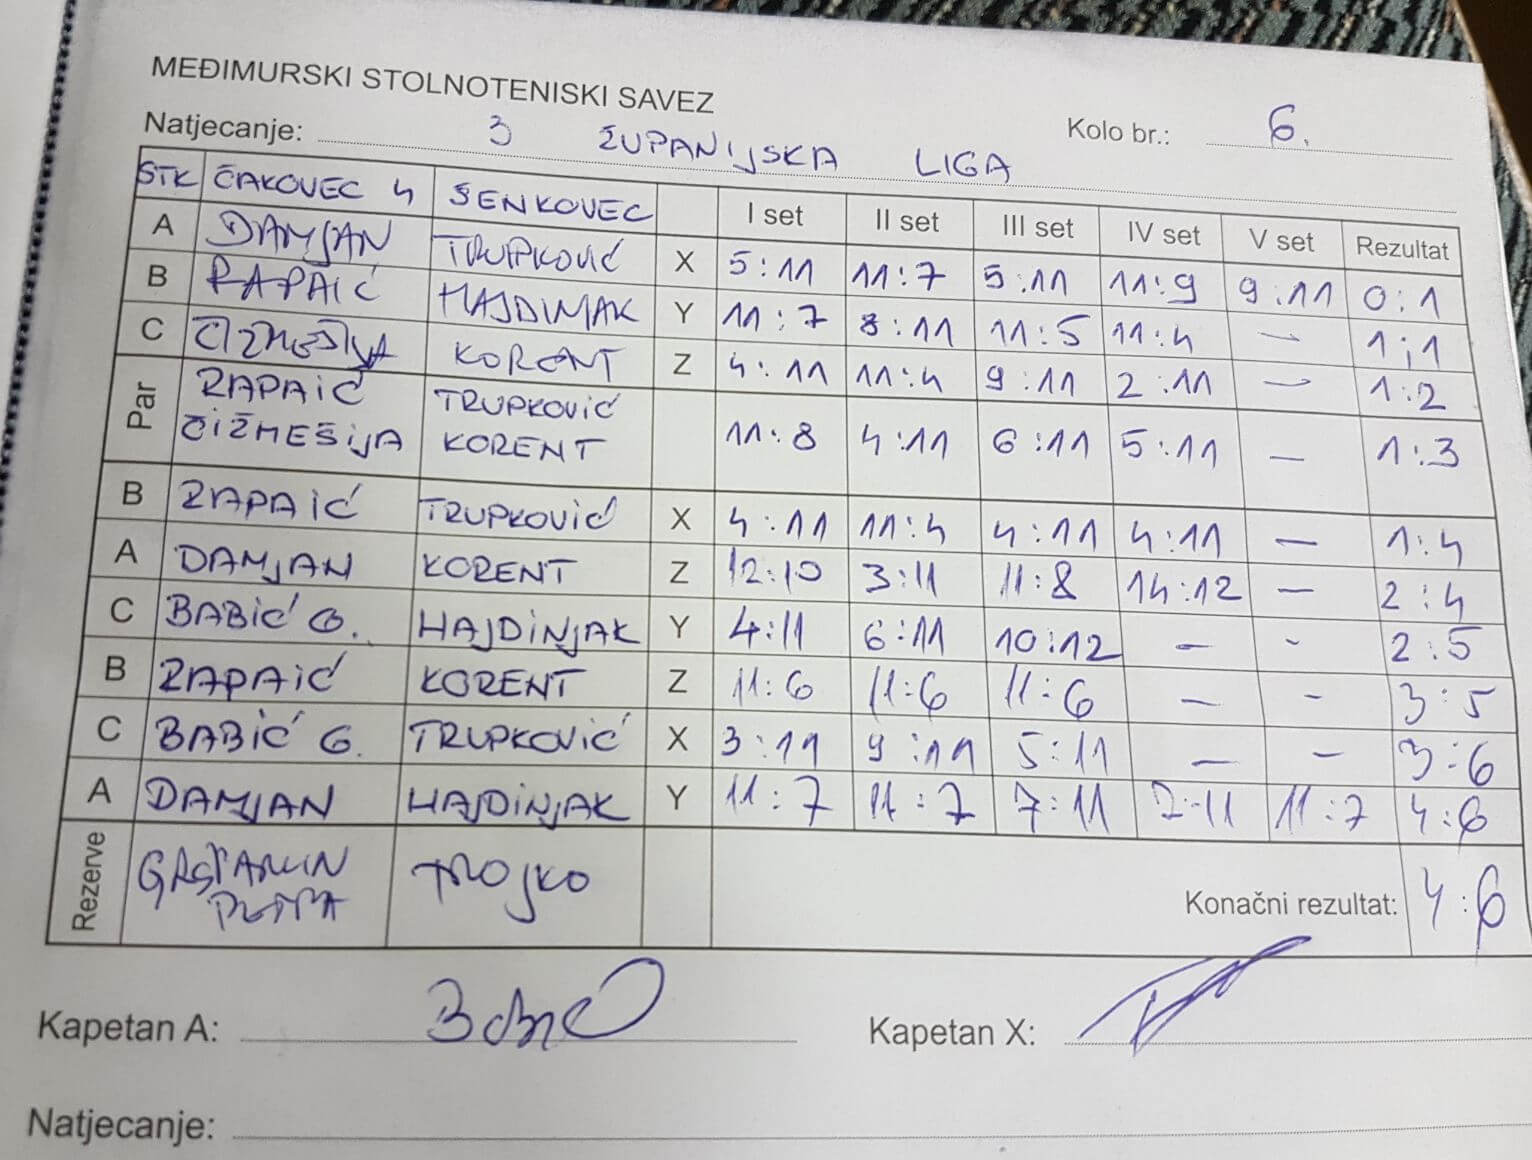 MEĐIMURSKI STOLNOTENISKI SAVEZ
Natjecanje: 3 ŽUPANIJSKA LIGA Kolo br.: 6.
STK ČAKOVEC 4 ŠENKOVEC I set II set III set IV set V set Rezultat
A DAMJAN TRUPKOVIĆ X 5:11 11:7 5:11 11:9 9:11 0:1
B RAPAIĆ HAJDINJAK Y 11:7 8:11 11:5 11:4 — 1:1
C ČIZMEŠIJA KORENT Z 4:11 11:4 9:11 2:11 — 1:2
Par RAPAIĆ TRUPKOVIĆ
ČIŽMEŠIJA KORENT 11:8 4:11 6:11 5:11 — 1:3
B RAPAIĆ TRUPKOVIĆ X 4:11 11:4 4:11 4:11 — 1:4
A DAMJAN KORENT Z 12:10 3:11 11:8 14:12 — 2:4
C BABIĆ G. HAJDINJAK Y 4:11 6:11 10:12 — - 2:5
B RAPAIĆ KORENT Z 11:6 11:6 11:6 — - 3:5
C BABIĆ G. TRUPKOVIĆ X 3:11 9:11 5:11 — — 3:6
A DAMJAN HAJDINJAK Y 11:7 11:7 7:11 7:11 11:7 4:6
Rezerve TROJKO
Konačni rezultat: 4:6
Kapetan A: Kapetan X:
Natjecanje: